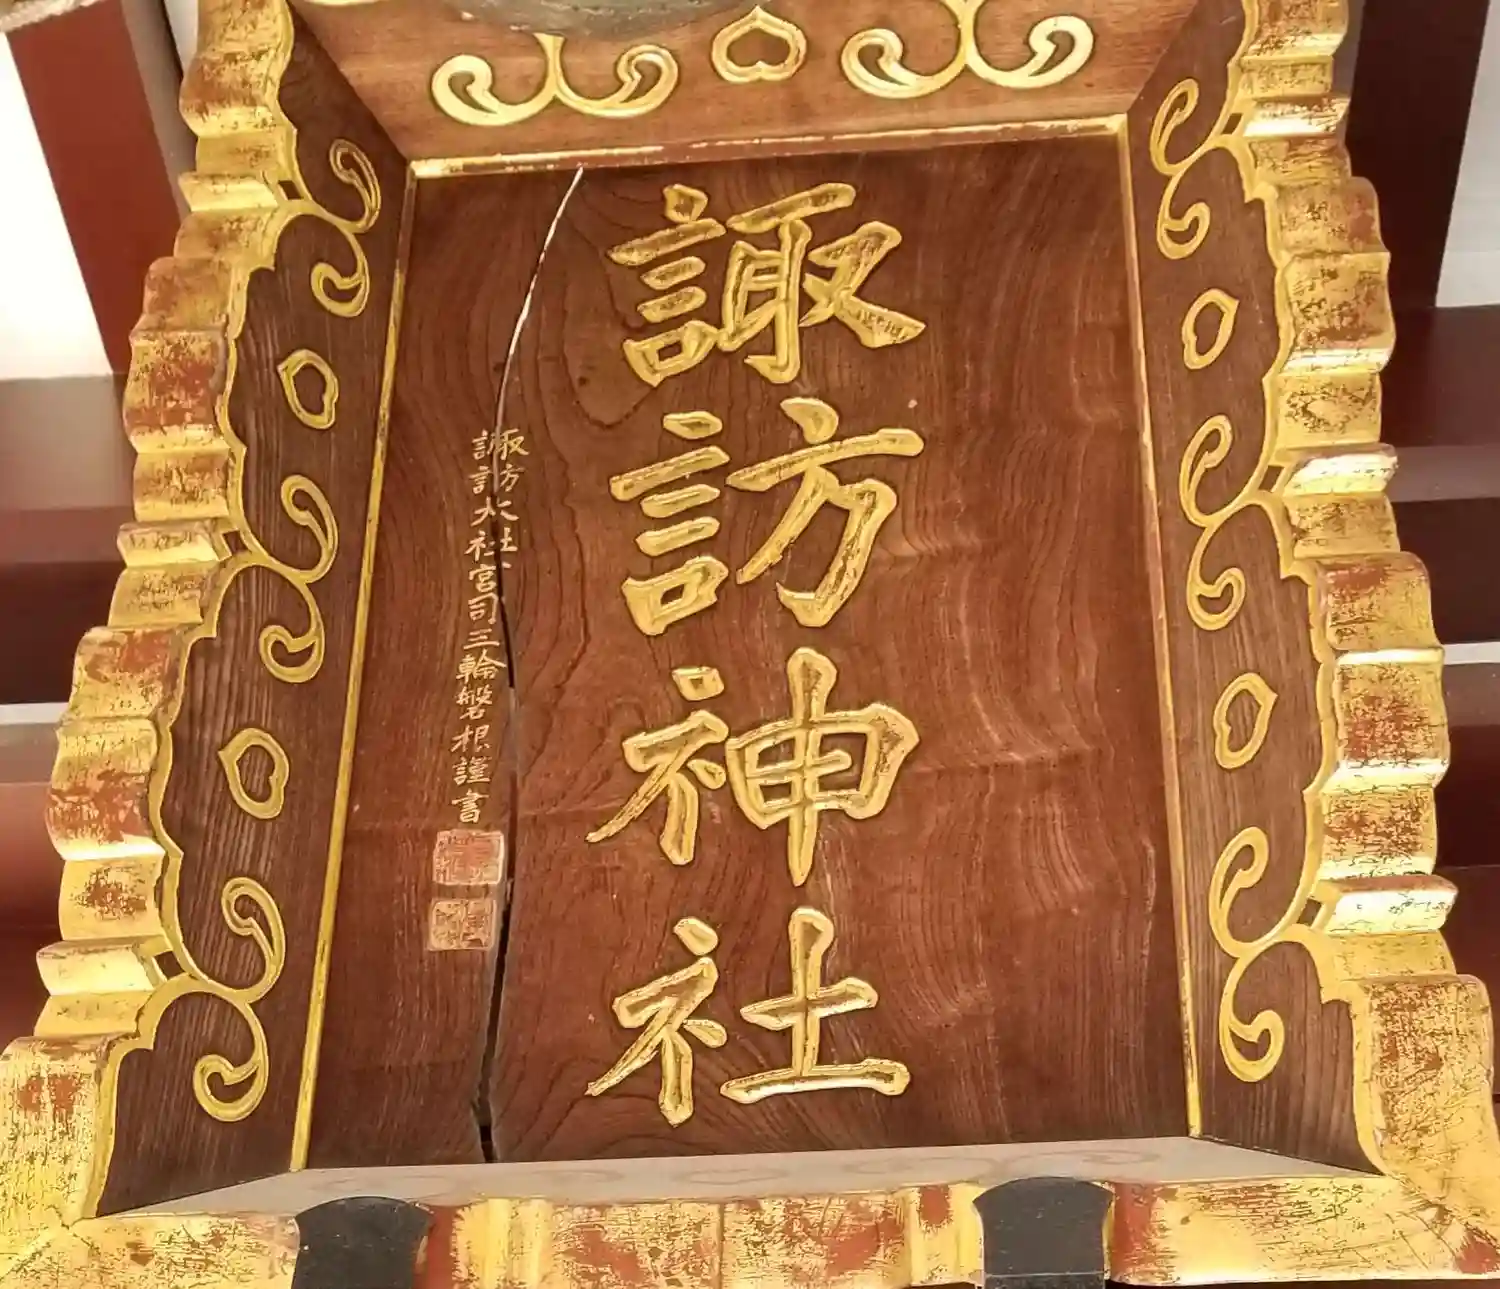 諏訪神社
諏訪大社宮司三輪磐根謹書